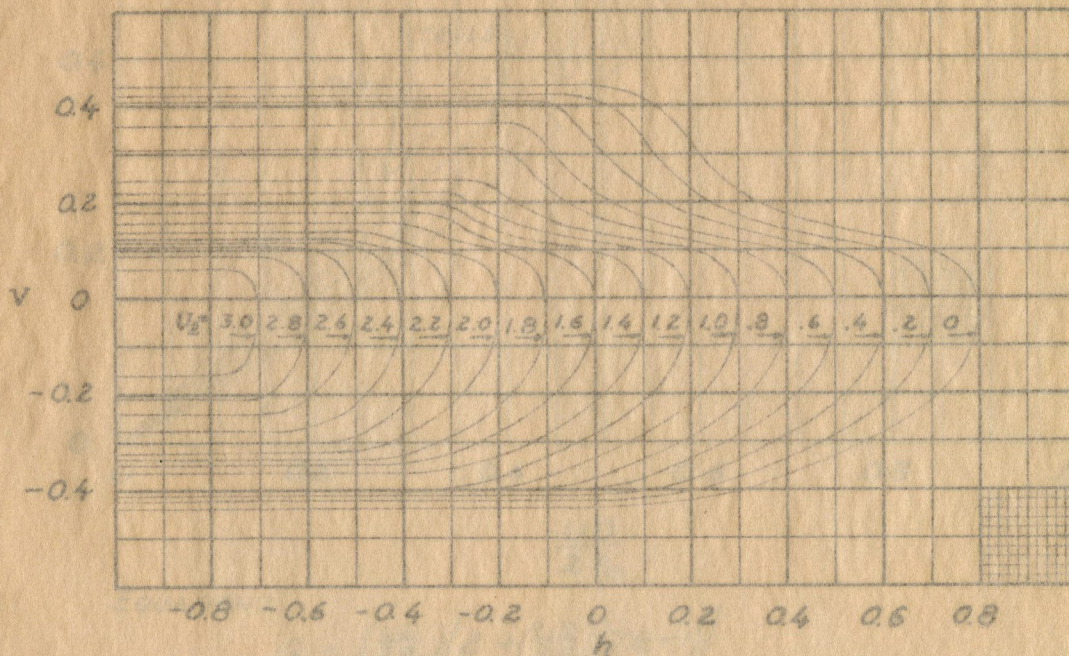 0.4
0.2
v 0
U₂= 3.0 2.8 2.6 2.4 2.2 2.0 1.8 1.6 1.4 1.2 1.0 .8 .6 .4 .2 0
-0.2
-0.4
-0.8 -0.6 -0.4 -0.2 0 0.2 0.4 0.6 0.8
h